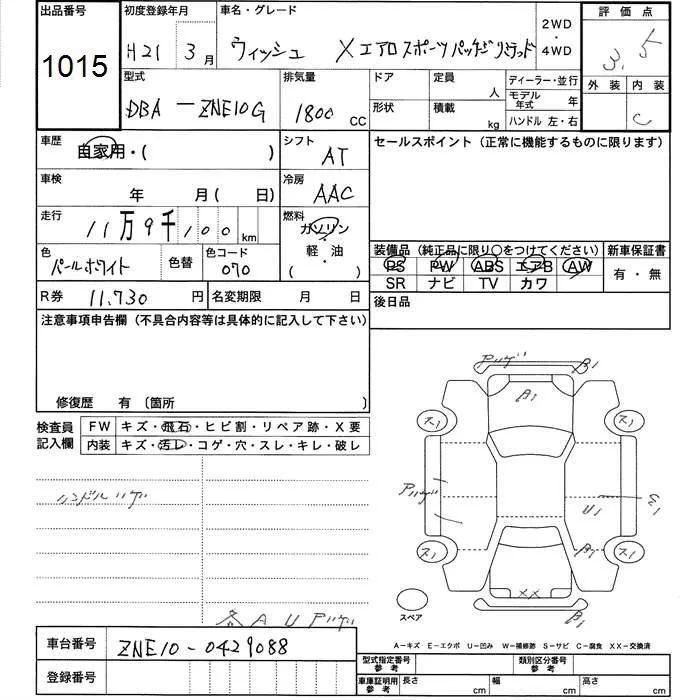 出品番号 初度登録年月 車名・グレード 2WD・4WD 評価点
1015 H21 3月 ウィッシュ Xエアロスポーツパッケージリミテッド 3.5
型式 排気量 ドア 定員 人 ディーラー・並行 外装 内装
DBA-ZNE10G 1800 CC 形状 積載 kg モデル年式 年 C
ハンドル 左・右
車歴 自家用・( ) シフト AT セールスポイント(正常に機能するものに限ります)
車検 年 月( 日) 冷房 AAC
走行 11万9千100km 燃料 ガソリン・軽油・( )
色 パールホワイト 色替 色コード 070 装備品(純正品に限り○をつけてください) 新車保証書
PS PW ABS エアB AW 有・無
SR ナビ TV カワ
R券 11,730円 名変期限 月 日 後日品
注意事項申告欄(不具合内容等は具体的に記入して下さい)
修復歴 有〔箇所 〕
検査員記入欄 FW キズ・飛石・ヒビ割・リペア跡・X要
内装 キズ・汚レ・コゲ・穴・スレ・キレ・破レ
ハンドルハゲ
各AUアリ
A1
B1
ス1
ス1
U1
B1
ス1
ス1
XX
B1
スペア
A-キズ E-エクボ U-凹み W-補修跡 S-サビ C-腐食 XX-交換済
車台番号 ZNE10-0429088
登録番号
型式指定番号 参考 類別区分番号 参考
車庫証明用 参考 長さ cm 幅 cm 高さ cm